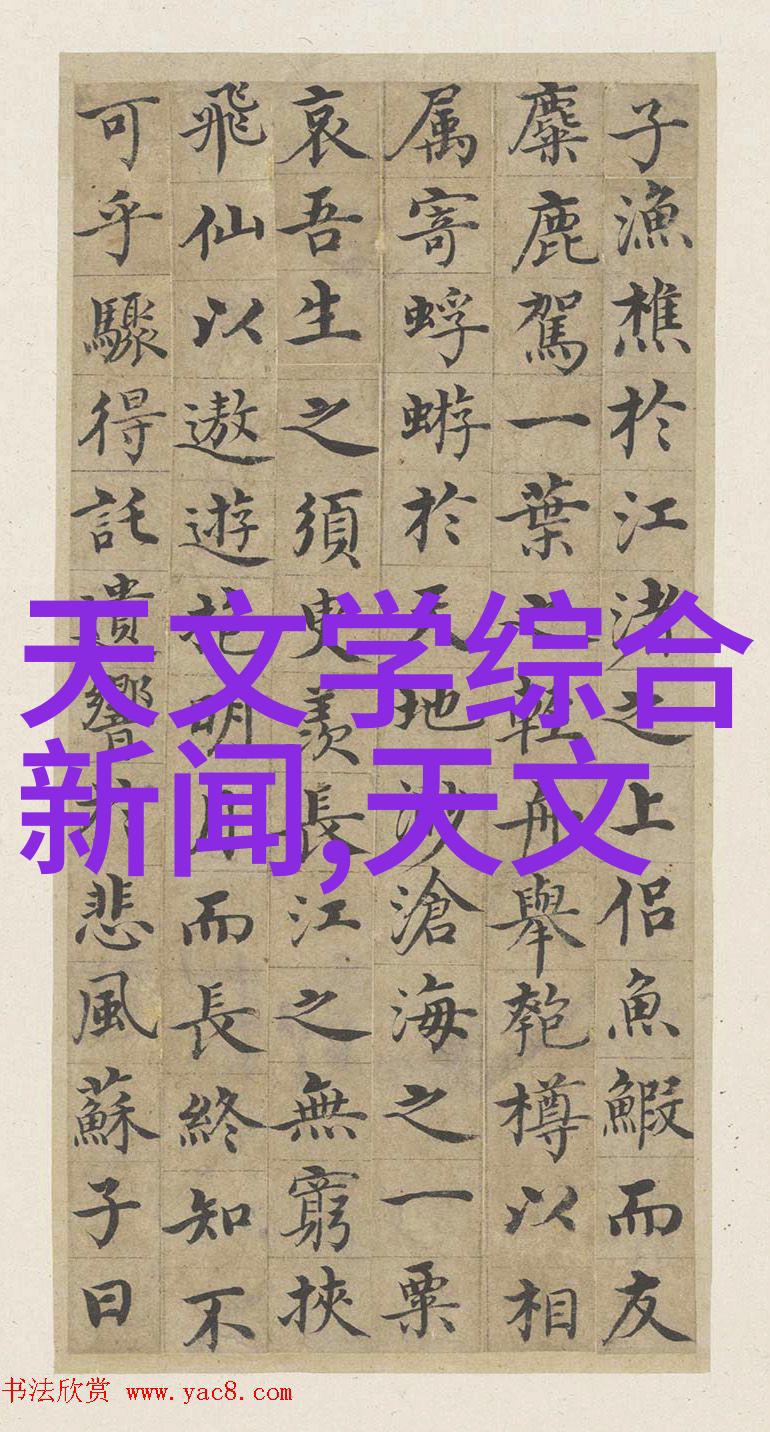 子漁樵於江渚之上侶魚鰕而友
麋鹿駕一葉之輕舟舉匏樽以相
属寄蜉蝣於天地渺滄海之一粟
哀吾生之須臾羨長江之無窮挾
飛仙以遨遊抱明月而長終知不
可乎驟得託遺響於悲風蘇子曰
天文学综合
新闻,天文
书法欣赏 www.yac8.com